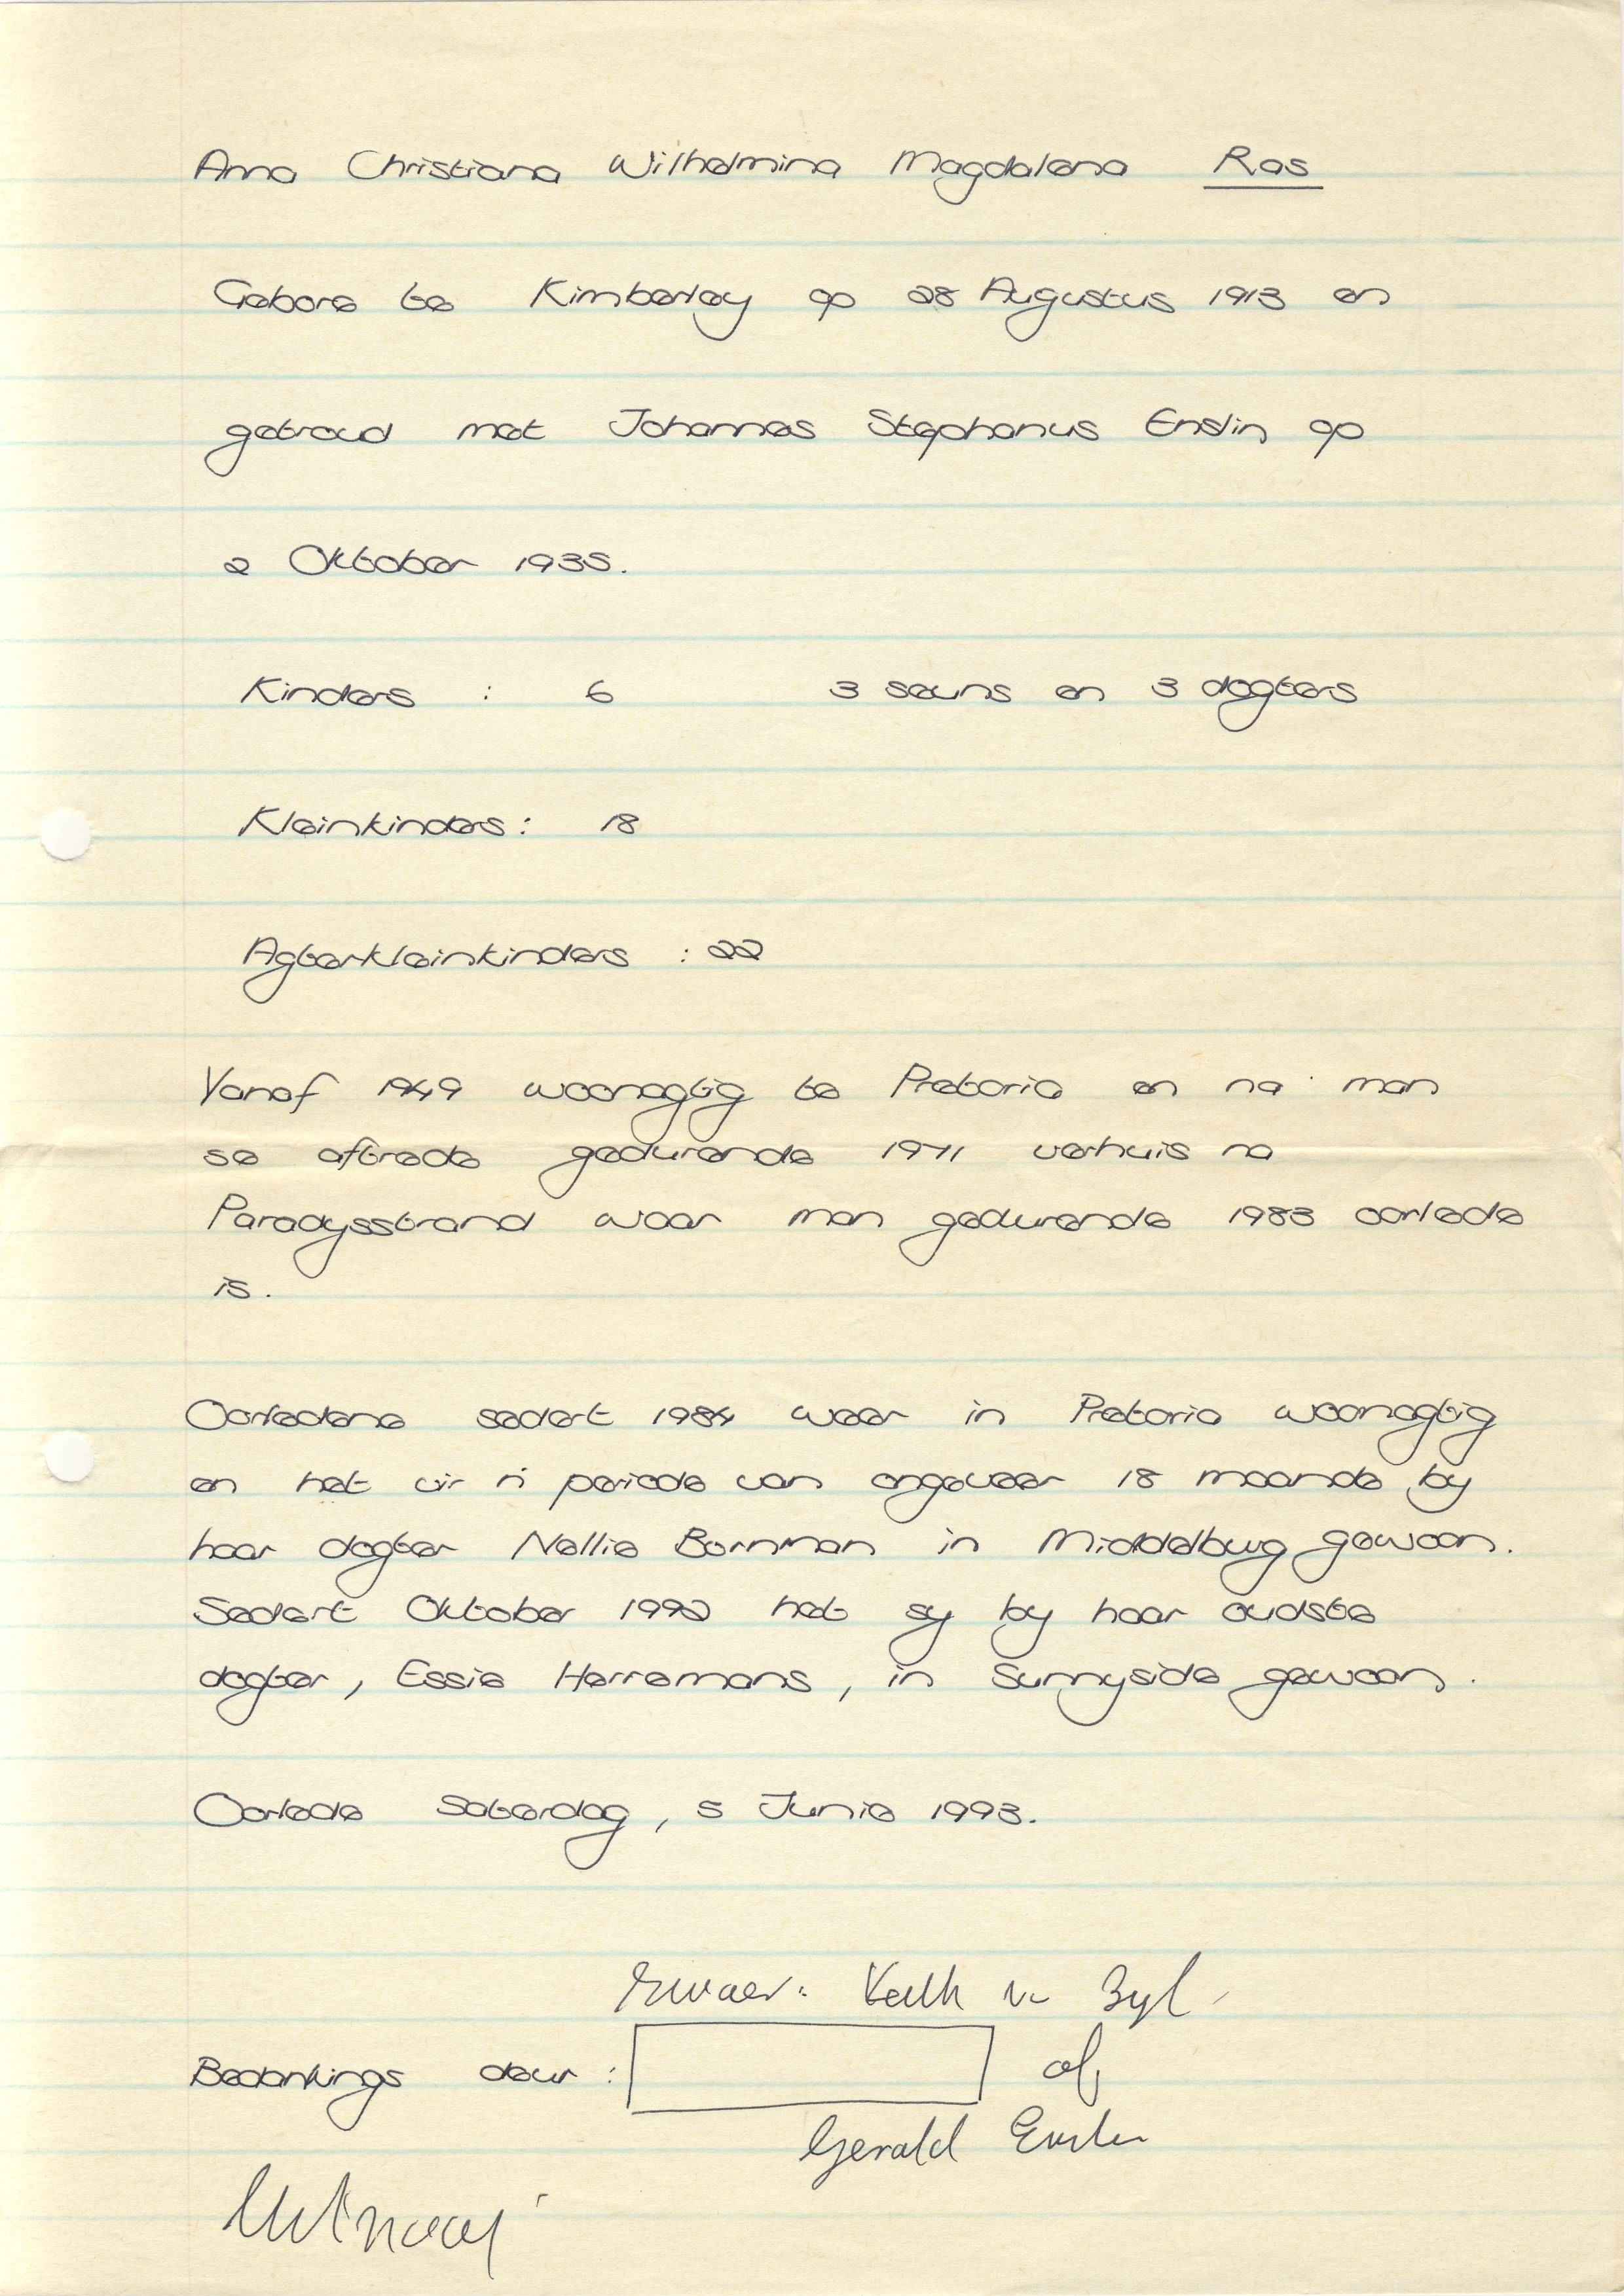 Anna Christiana Wilhelmina Magdalena Ras
Gebore te Kimberley op 28 Augustus 1913 en
getroud met Johannes Stephanus Enslin op
2 Oktober 1935.
Kinders : 6 3 seuns en 3 dogters
Kleinkinders : 18
Agterkleinkinders : 22
Vanaf 1949 woonagtig te Pretoria en na man
se aftrede gedurende 1971 verhuis na
Paradysstrand waar man gedurende 1983 oorlede
is.
Oorledene sedert 1984 weer in Pretoria woonagtig
en het vir 'n periode van ongeveer 18 maande by
haar dogter Nellie Bornman in Middelburg gewoon.
Sedert Oktober 1992 het sy by haar oudste
dogter, Essie Herremans, in Sunnyside gewoon.
Oorlede Saterdag, 5 Junie 1993.
Swaer: v Zyl
Bedankings deur : of
Gerald Enslin